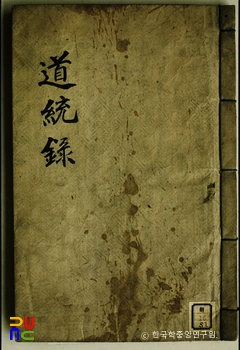 道統錄
© 한국학중앙연구원